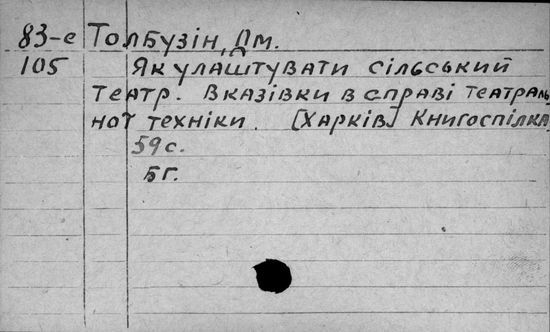 83-е Толбузін, Дм.
105 Як улаштувати сільський
театр. Вказівки в справі театраль
ної техніки. [Харків] Книгоспілка,
59 с.
5г.